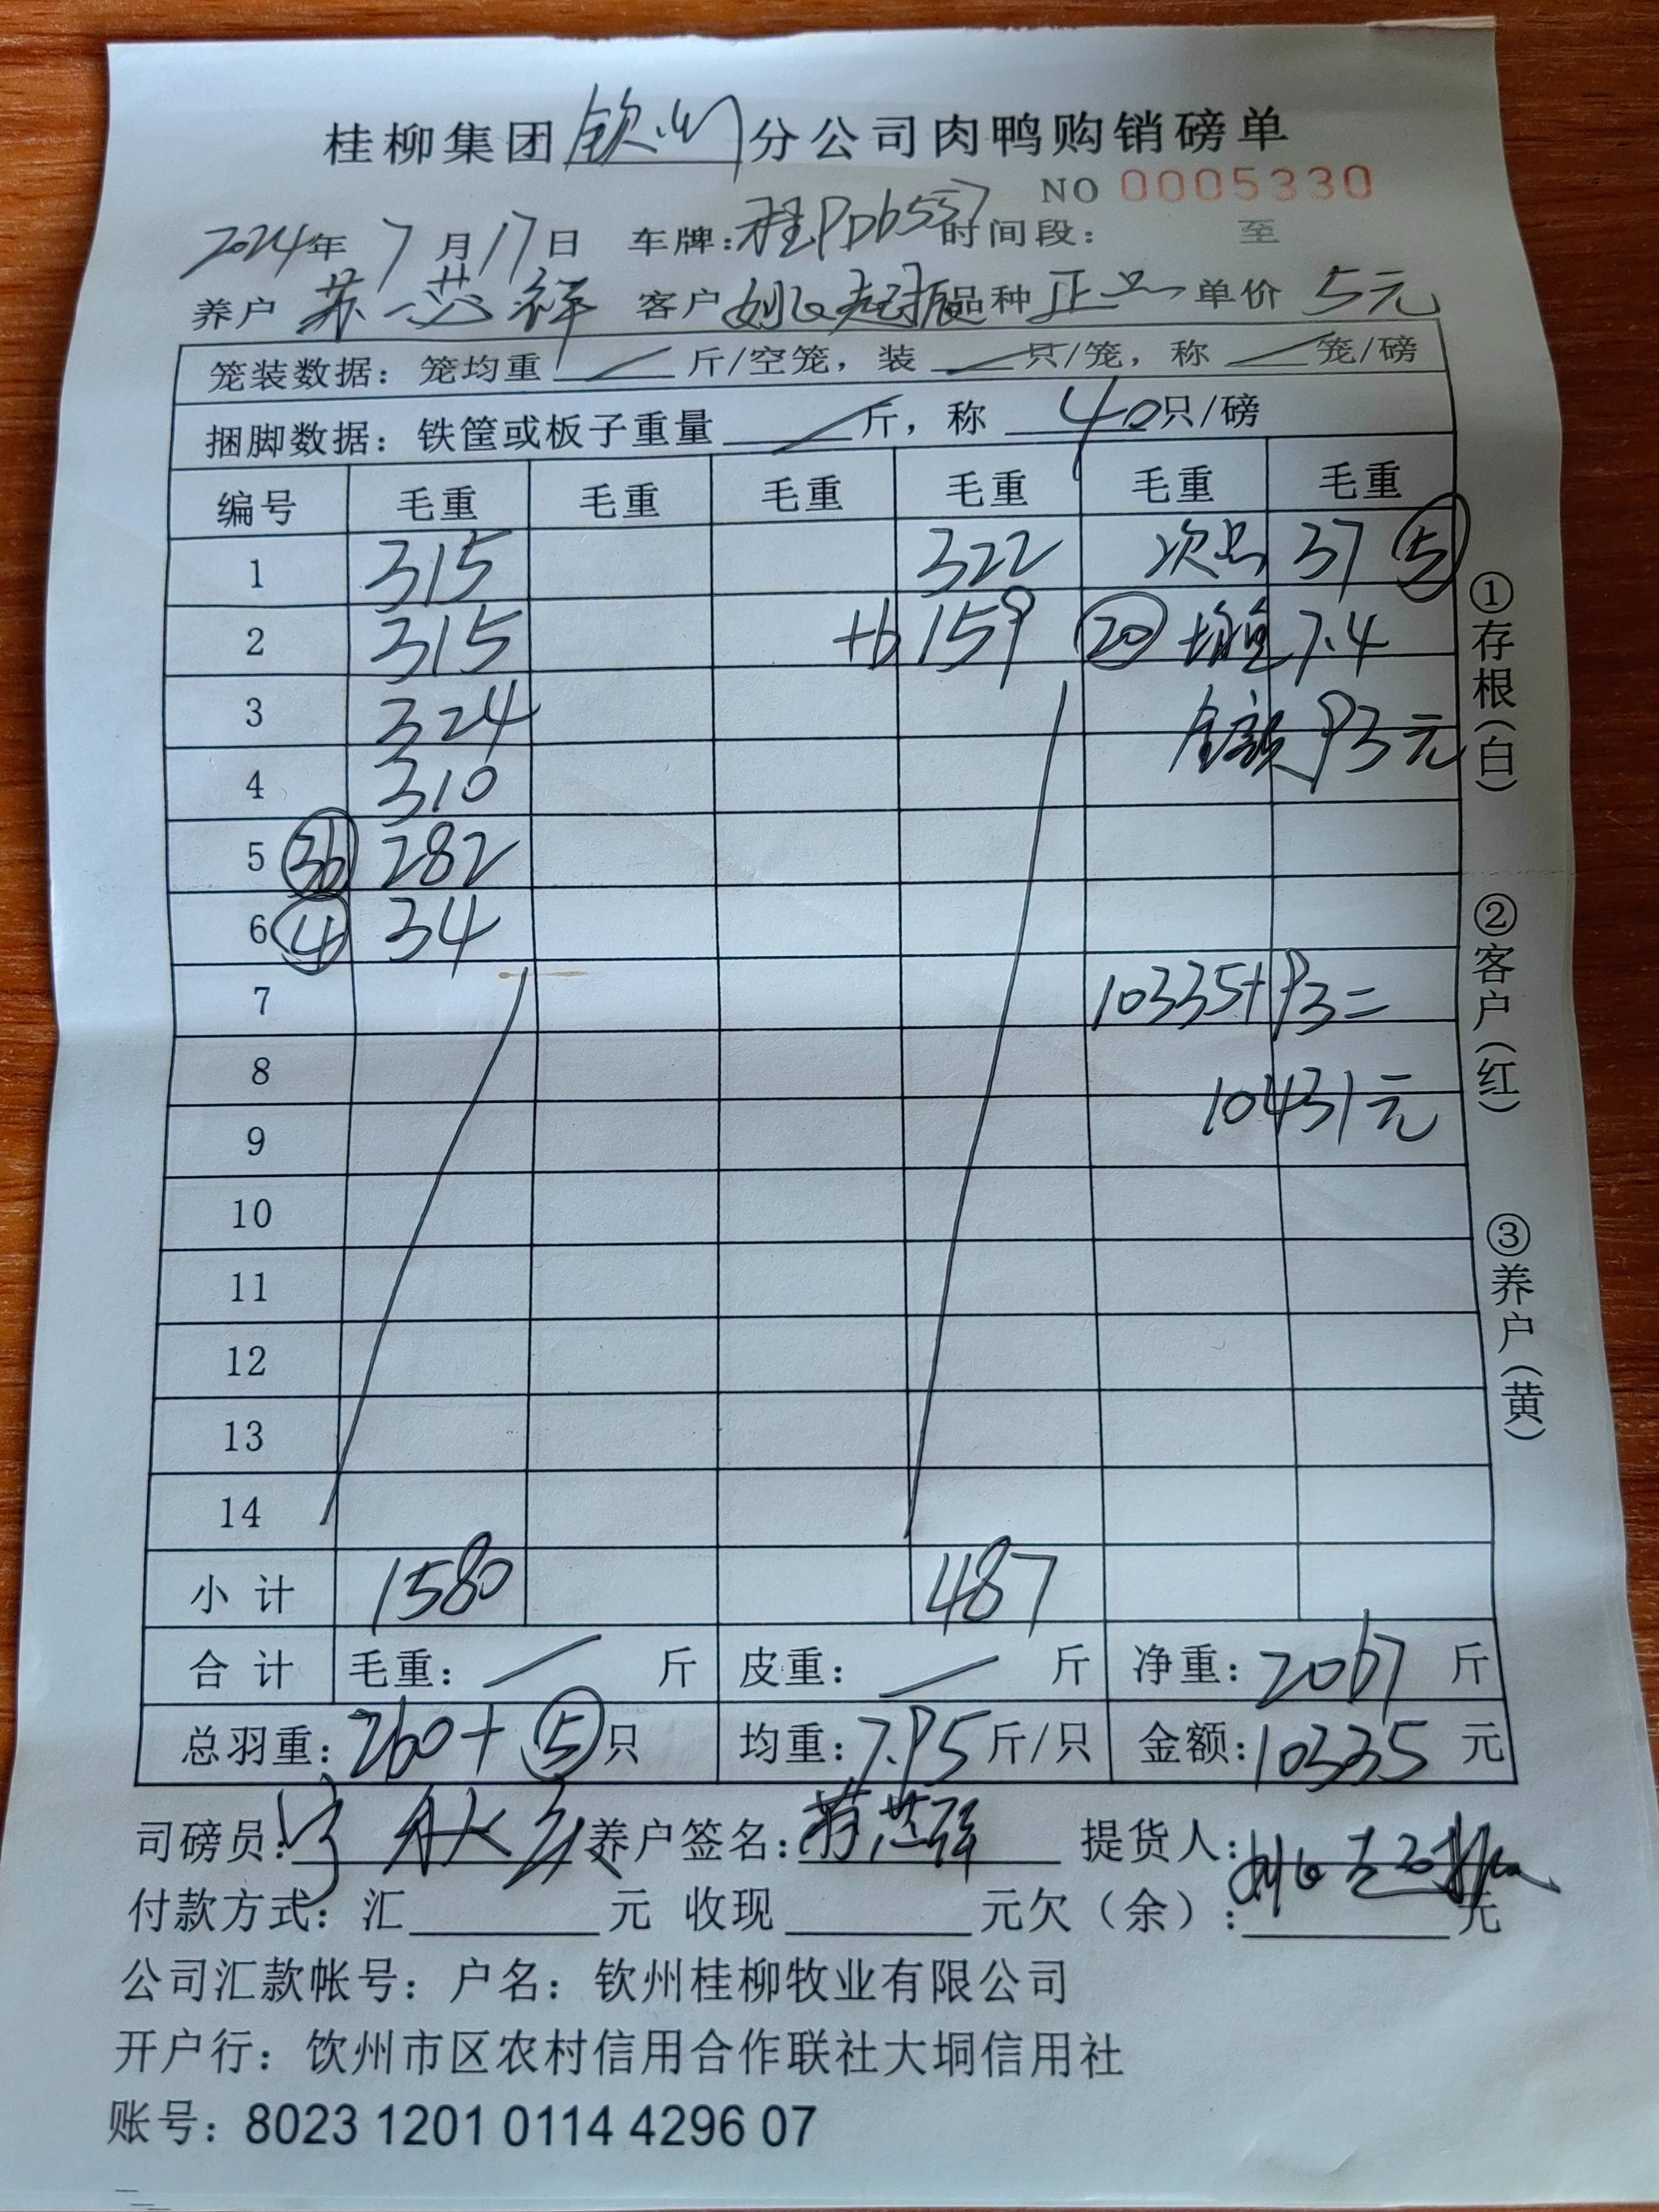 桂柳集团钦州分公司肉鸭购销磅单
NO 0005330
2024年7月17日 车牌:桂PD6557 时间段: 至
养户 苏芯祥 客户 姚起振 品种 正品 单价 5元
笼装数据:笼均重 斤/空笼,装 只/笼,称 笼/磅
捆脚数据:铁筐或板子重量 斤,称 40只/磅
编号 毛重 毛重 毛重 毛重 毛重 毛重
1 315 322 次品 37 ⑤
2 315 +6 159 ⑳ 均重 7.4
3 324 金额 93元
4 310
5 ㊱ 282
6 ④ 34
7 10335+93=
8
9 10431元
10
11
12
13
14
小计 1580 487
合计 毛重: 斤 皮重: 斤 净重:2067斤
总羽重:260+⑤只 均重:7.95斤/只 金额:10335元
司磅员: 养户签名:苏芯祥 提货人:姚起振
付款方式:汇 元 收现 元欠(余): 元
公司汇款帐号:户名:钦州桂柳牧业有限公司
开户行:钦州市区农村信用合作联社大垌信用社
账号:8023 1201 0114 4296 07
①存根(白)
②客户(红)
③养户(黄)